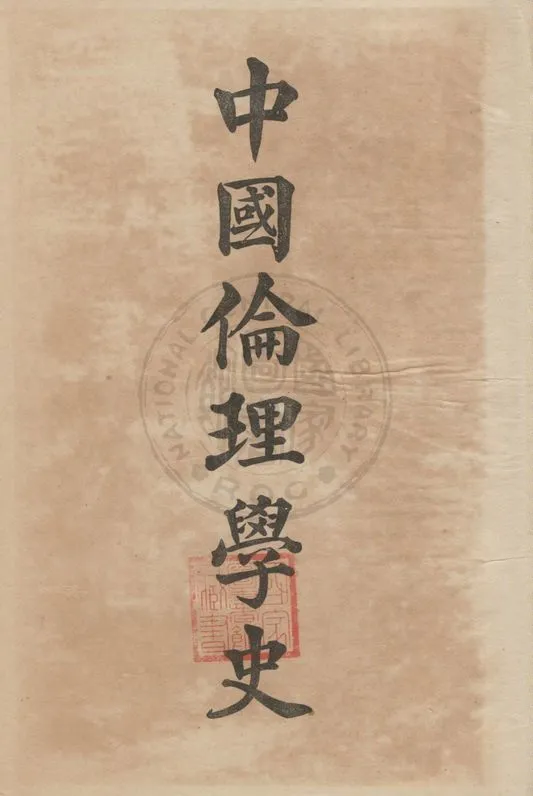 中國倫理學史
NATIONAL CENTRAL LIBRARY
R.O.C.